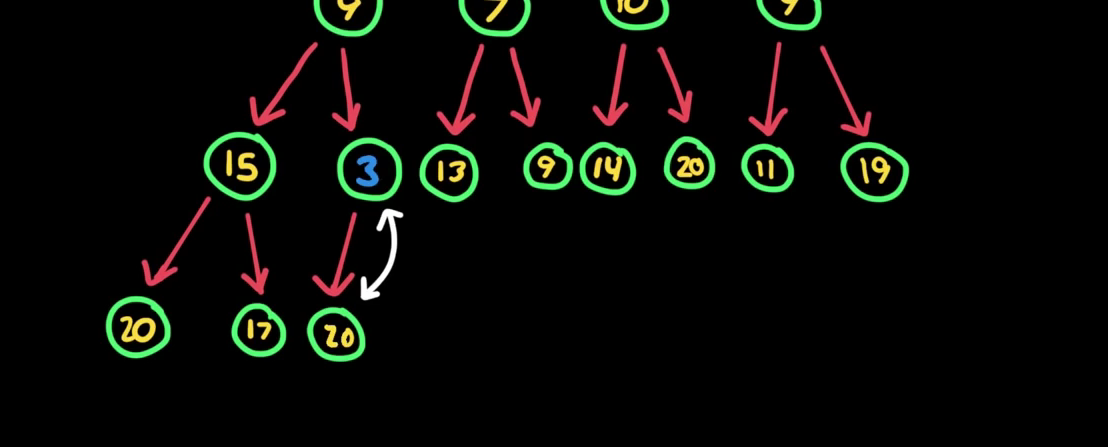 9 7 10 9
15 3 13 9 14 20 11 19
20 17 20